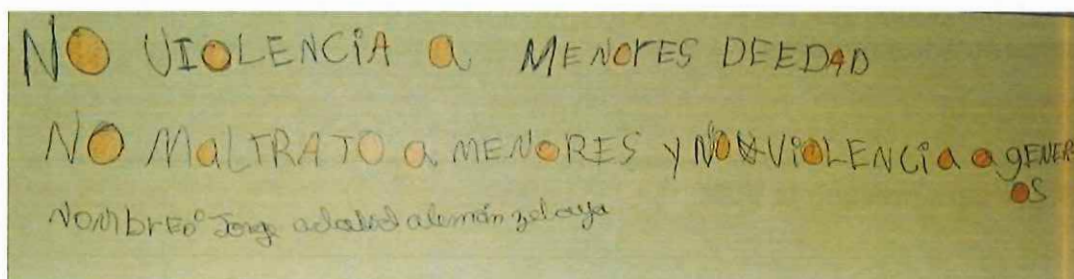 NO VIOLENCIA a MENOrES DEEDAD
NO MaLTRATO a MENORES y NO VIOLENCIA a gENEROS
NOMbrE: Jorge adalid alemán zelaya